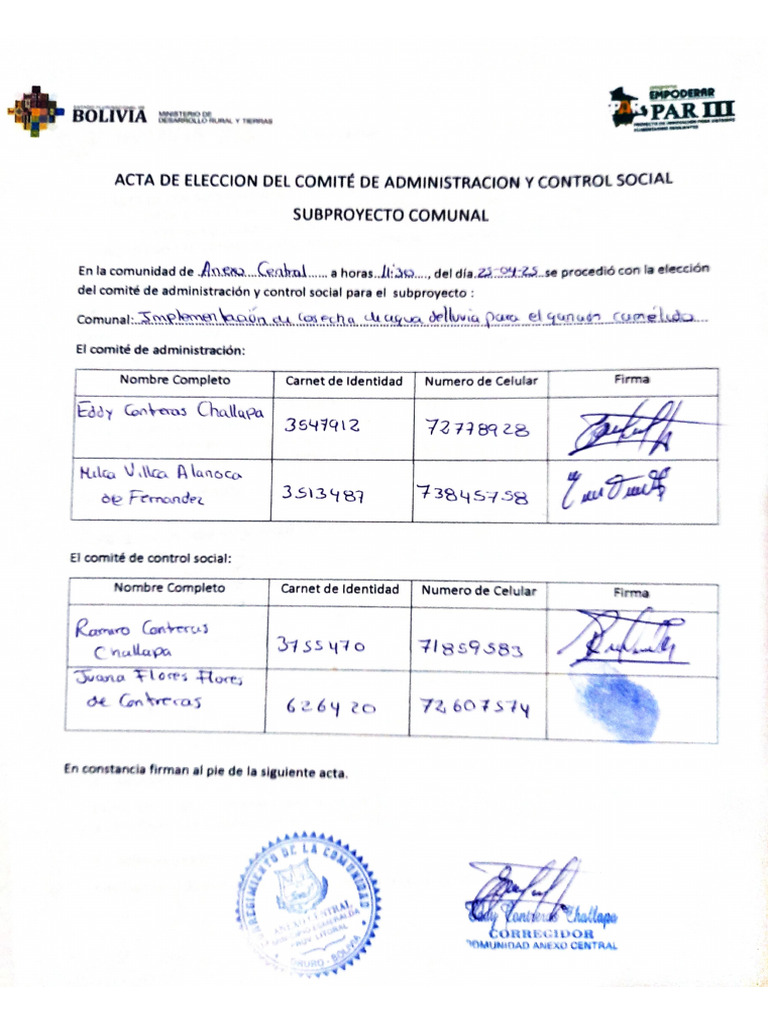 ESTADO PLURINACIONAL DE
BOLIVIA
MINISTERIO DE
DESARROLLO RURAL Y TIERRAS
EMPODERAR
PAR III
ACTA DE ELECCION DEL COMITÉ DE ADMINISTRACION Y CONTROL SOCIAL
SUBPROYECTO COMUNAL
En la comunidad de Anexo Central a horas 11:30, del día 25-04-25 se procedió con la elección
del comité de administración y control social para el subproyecto :
Comunal: Implementación de cosecha de agua de lluvia para el ganado camélido
El comité de administración:
Nombre Completo Carnet de Identidad Numero de Celular Firma
Eddy Contreras Challapa 3547912 72778928
Milca Villca Alanoca
de Fernandez 3513487 73845758
El comité de control social:
Nombre Completo Carnet de Identidad Numero de Celular Firma
Ramiro Contreras
Challapa 3755470 71859583
Juana Flores Flores
de Contreras 626420 72607574
En constancia firman al pie de la siguiente acta.
CORREGIMIENTO DE LA COMUNIDAD
ANEXO CENTRAL
MUNICIPIO ESMERALDA
PROV. LITORAL
ORURO - BOLIVIA
Eddy Contreras Challapa
CORREGIDOR
COMUNIDAD ANEXO CENTRAL